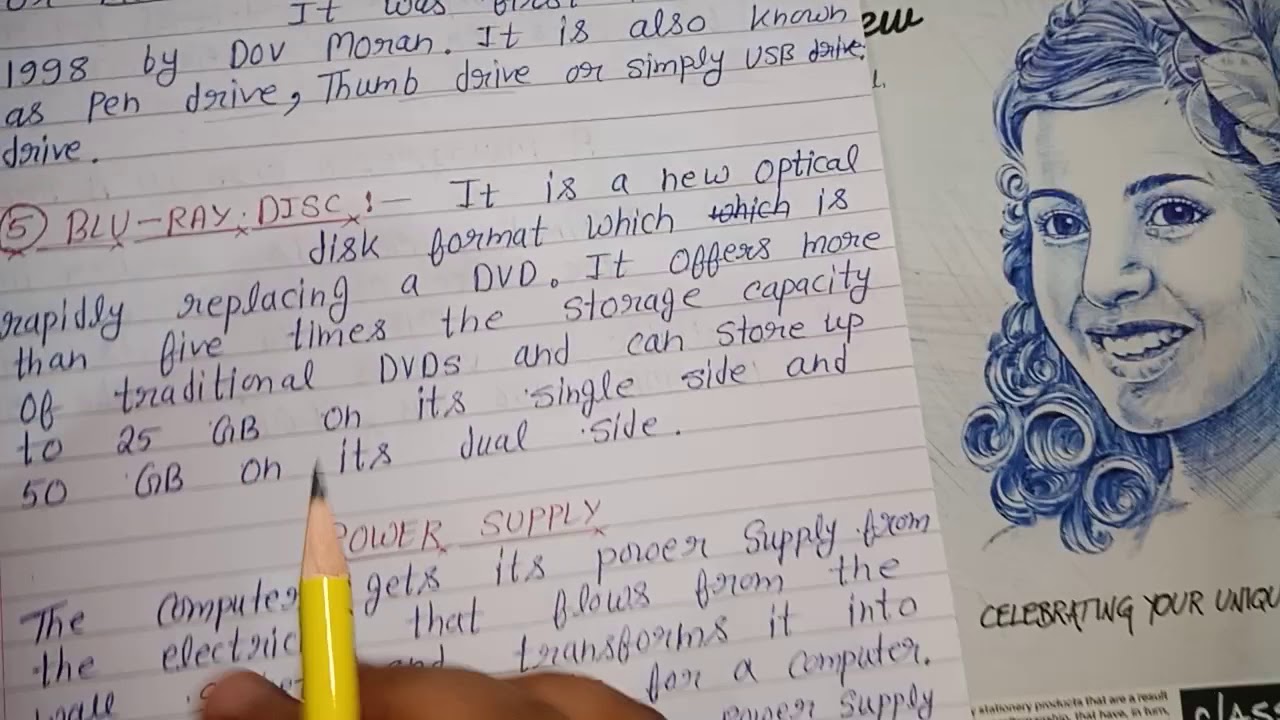 It was first
1998 by Dov Moran. It is also known
as Pen drive, Thumb drive or simply USB drive.
drive.
5 BLU-RAY DISC :- It is a new optical
disk format which which is
rapidly replacing a DVD. It offers more
than five times the storage capacity
of traditional DVDs and can store up
to 25 GB on its single side and
50 GB on its dual side.
POWER SUPPLY
The computer gets its power supply from
the that flows from the
and transforms it into
for a computer.
power supply
ew
CELEBRATING YOUR UNIQU
stationery products that are a result
that have, in turn,
class